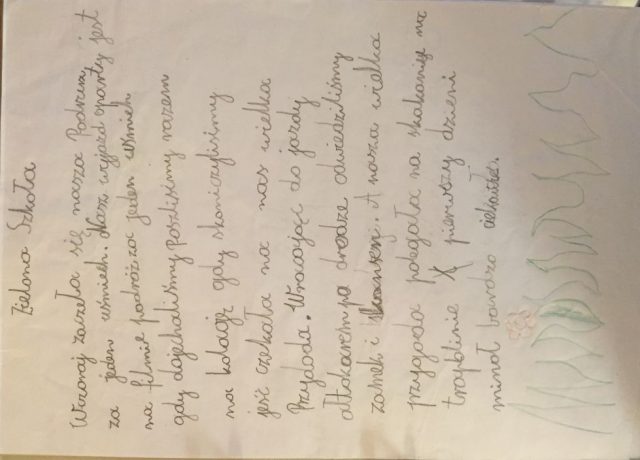 Zielona Szkoła
Wczoraj zaczeła się nasza Podruży
za jeden uśmiech. Nasz wyjazd oparty jest
na filmie podróż za jeden uśmiech
gdy dojechaliśmy poszliśmy razem
na kolacje gdy skończyliśmy
jeść czekała na nas wielka
Przydoda. Wracając do jazdy
ałtokarem po drodze odwiedziliśmy
zamek i. A nasza wielka
przygoda polegała na skakaniu na
trapolinie pierwszy dzień
minoł bardzo